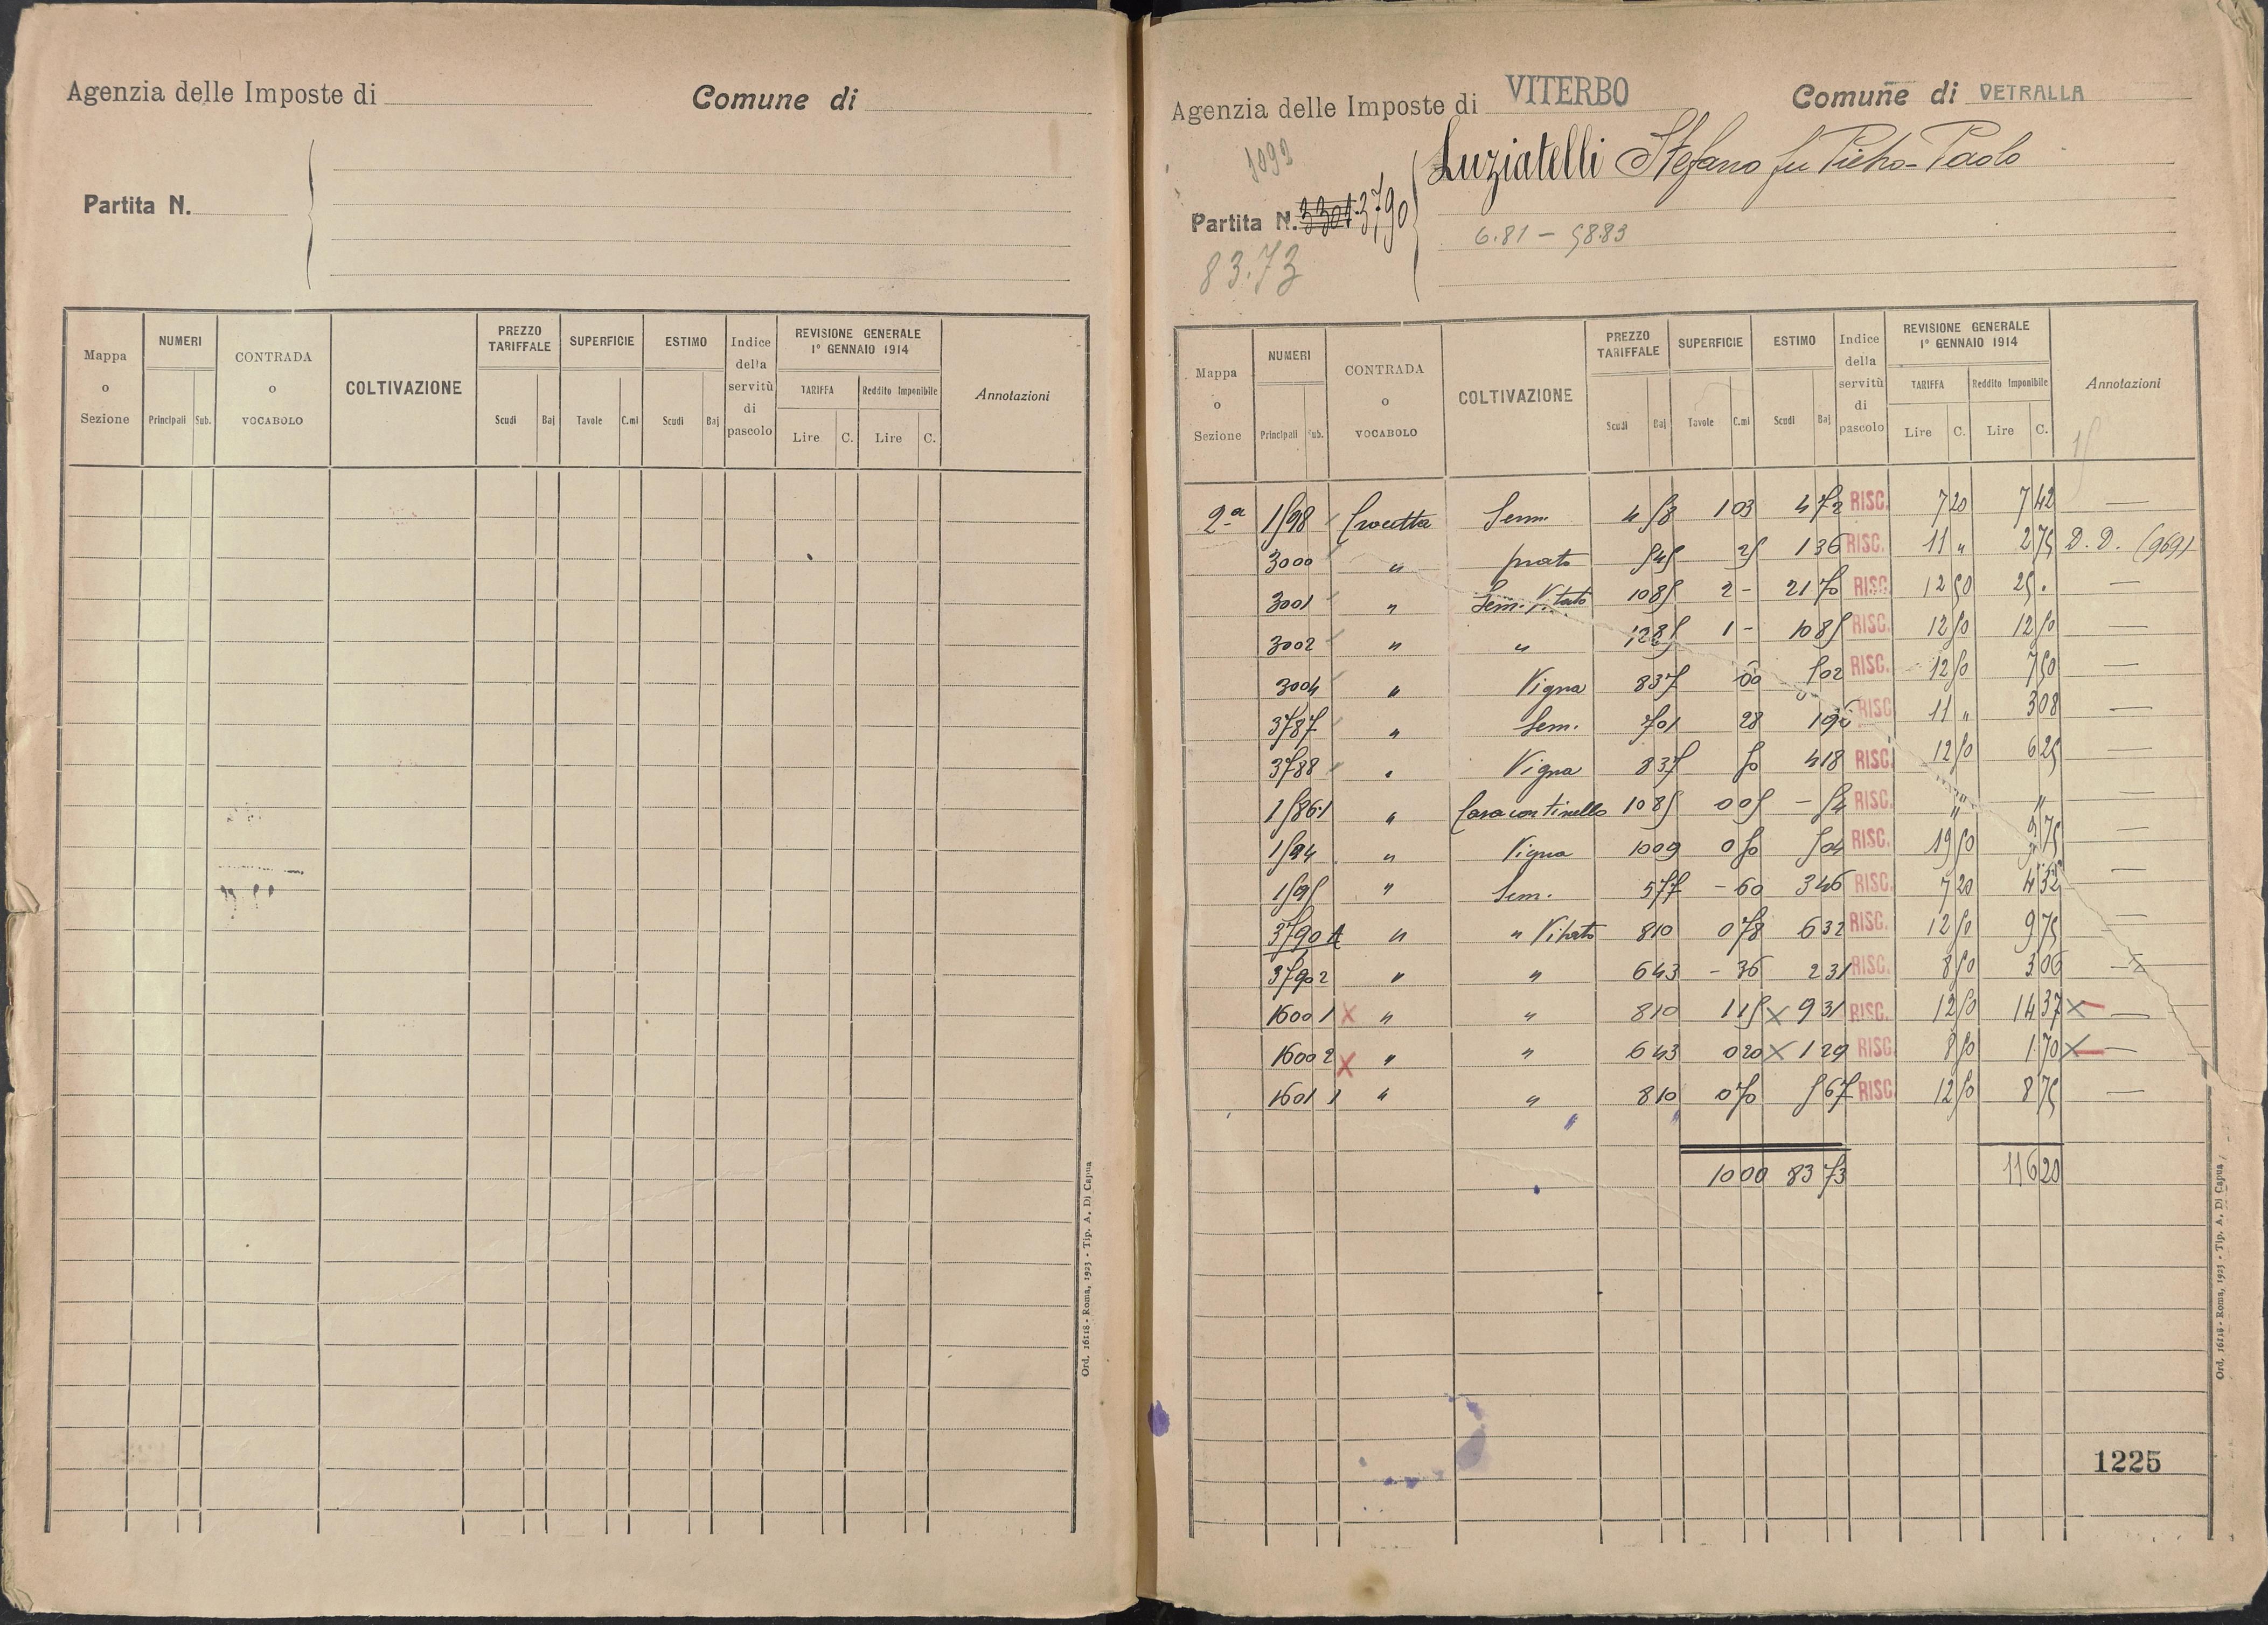 Agenzia delle Imposte di
Comune di
Partita N.
Mappa o Sezione | NUMERI | CONTRADA o VOCABOLO | COLTIVAZIONE | PREZZO TARIFFALE | SUPERFICIE | ESTIMO | Indice della servitù di pascolo | REVISIONE GENERALE 1° GENNAIO 1914 | Annotazioni
Principali | Sub. | Scudi | Baj | Tavole | C.mi | Scudi | Baj | TARIFFA | Reddito Imponibile
Lire | C. | Lire | C.
Ord. 16118 - Roma, 1923 - Tip. A. Di Capua
Agenzia delle Imposte di VITERBO
Comune di VETRALLA
1092
Luziatelli Stefano fu Pietro-Paolo
Partita N. 3301 3790
6.81 - 58.83
83.73
Mappa o Sezione | NUMERI | CONTRADA o VOCABOLO | COLTIVAZIONE | PREZZO TARIFFALE | SUPERFICIE | ESTIMO | Indice della servitù di pascolo | REVISIONE GENERALE 1° GENNAIO 1914 | Annotazioni
Principali | Sub. | Scudi | Baj | Tavole | C.mi | Scudi | Baj | TARIFFA | Reddito Imponibile
Lire | C. | Lire | C.
2ª | 1598 | Crocetta | Sem. | 4 58 | 1 03 | 4 72 | RISC. | 7 20 | 7 42 | —
3000 | " | prato | 5 45 | 25 | 1 36 | RISC. | 11 " | 2 75 | D. D. (969)
3001 | " | Sem. Vitato | 10 85 | 2 - | 21 70 | RISC. | 12 50 | 25 . | —
3002 | " | " | 1 - | 10 85 | RISC. | 12 50 | 12 50 | —
3004 | " | Vigna | 8 37 | 60 | 5 02 | RISC. | 12 50 | 7 50 | —
3787 | " | Sem. | 7 01 | 28 | 1 96 | RISC. | 11 " | 3 08 | —
3788 | " | Vigna | 8 37 | 50 | 4 18 | RISC. | 12 50 | 6 25 | —
1586 1 | " | Casa con tinello | 10 85 | 0 05 | - 54 | RISC. | " | " | —
1594 | " | Vigna | 10 09 | 0 50 | 5 04 | RISC. | 19 50 | 9 75 | —
1595 | " | Sem. | 5 77 | - 60 | 3 46 | RISC. | 7 20 | 4 32 | —
3790 1 | " | " Vitato | 8 10 | 0 78 | 6 32 | RISC. | 12 50 | 9 75 | —
3790 2 | " | " | 6 43 | - 36 | 2 31 | RISC. | 8 50 | 3 06 | —
1600 1 X | " | " | 8 10 | 1 15 X | 9 31 | RISC. | 12 50 | 14 37 X | —
1600 2 X | " | " | 6 43 | 0 20 X | 1 29 | RISC. | 8 50 | 1 70 X | —
1601 1 | " | " | 8 10 | 0 70 | 5 67 | RISC. | 12 50 | 8 75 | —
10 00 | 83 73 | 116 20
1225
Ord. 16118 - Roma, 1923 - Tip. A. Di Capua